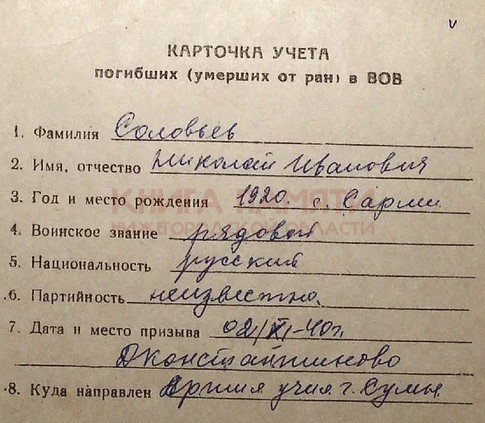 КАРТОЧКА УЧЕТА
погибших (умерших от ран) в ВОВ
1. Фамилия Соловьев
2. Имя, отчество Николай Иванович
3. Год и место рождения 1920. с. Сарми
КНИГА ПАМЯТИ
НИЖЕГОРОДСКОЙ ОБЛАСТИ
4. Воинское звание рядовой
5. Национальность русский
6. Партийность неизвестно.
7. Дата и место призыва 02/XI-40г.
Дконстантиново
8. Куда направлен г. Сумы